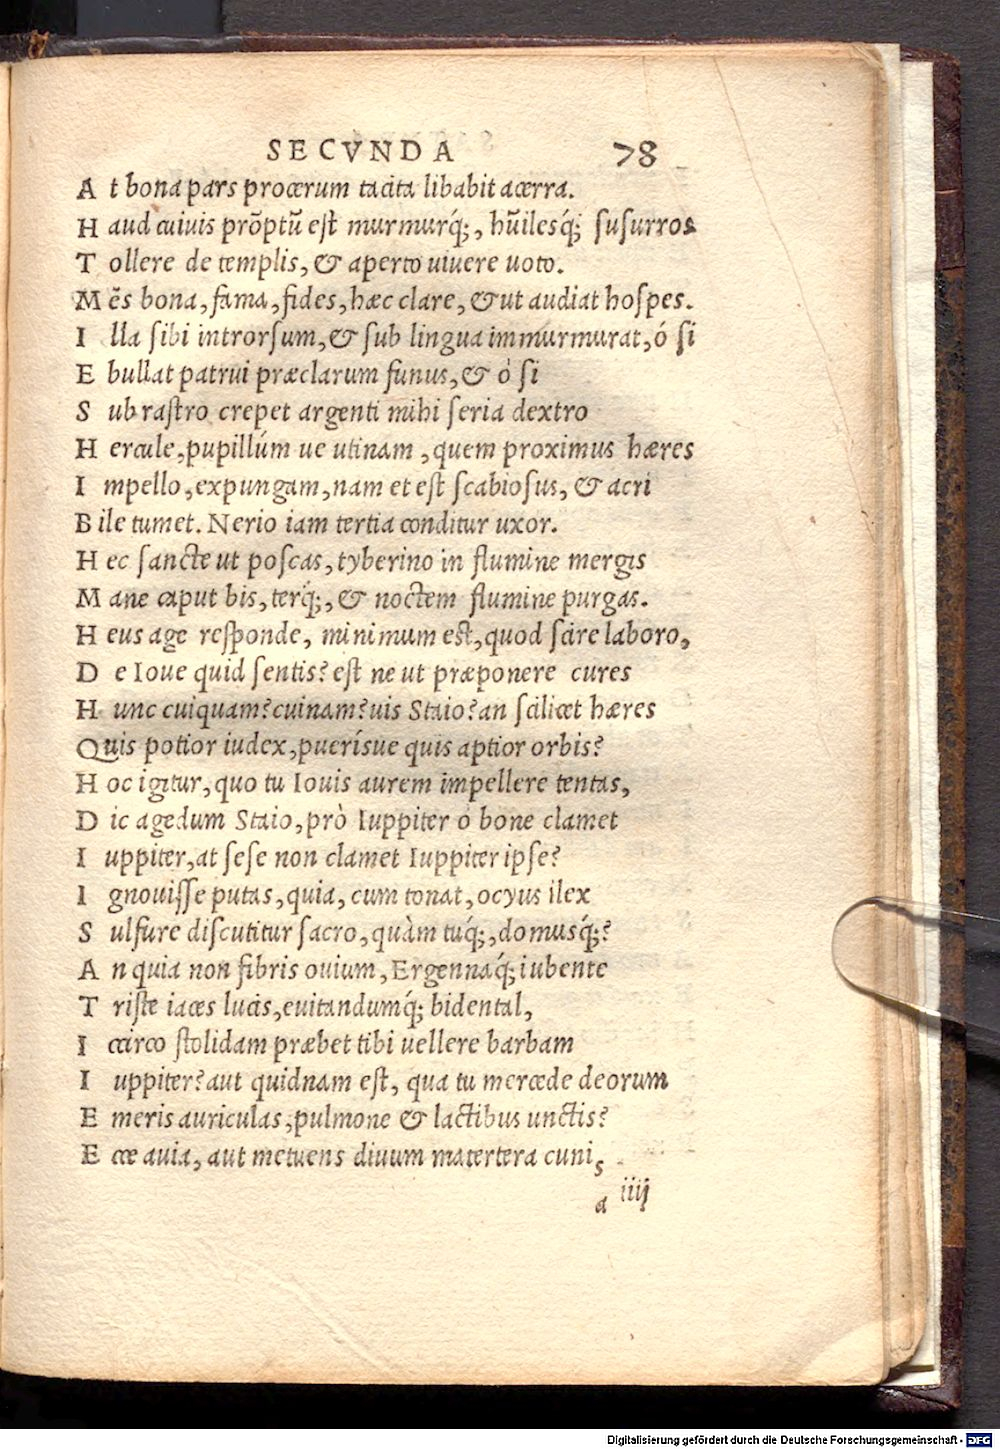 SECVNDA 78
A t bona pars procerum tacita libabit acerra.
H aud cuiuis prõptũ est murmurq́;, hũilesq́; susurros
T ollere de templis, & aperto uiuere uoto.
M ẽs bona, fama, fides, hæc clare, & ut audiat hospes.
I lla sibi introrsum, & sub lingua immurmurat, ó si
E bullat patrui præclarum funus, & ò si
S ub rastro crepet argenti mihi seria dextro
H ercule, pupillúm ue utinam, quem proximus hæres
I mpello, expungam, nam et est scabiosus, & acri
B ile tumet. Nerio iam tertia conditur uxor.
H ec sancte ut poscas, tyberino in flumine mergis
M ane caput bis, terq́;, & noctem flumine purgas.
H eus age responde, minimum est, quod scire laboro,
D e Ioue quid sentis? est ne ut præponere cures
H unc cuiquam? cuinam? uis Staio? an scilicet hæres
Quis potior iudex, puerísue quis aptior orbis?
H oc igitur, quo tu Iouis aurem impellere tentas,
D ic agedum Staio, prò Iuppiter ó bone clamet
I uppiter, at sese non clamet Iuppiter ipse?
I gnouisse putas, quia, cum tonat, ocyus ilex
S ulfure discutitur sacro, quàm tuq́;, domusq́;?
A n quia non fibris ouium, Ergennaq́; iubente
T riste iaces lucis, euitandumq́; bidental,
I ccirco stolidam præbet tibi uellere barbam
I uppiter? aut quidnam est, qua tu mercede deorum
E meris auriculas, pulmone & lactibus unctis?
E cce auia, aut metuens diuum matertera cunis,
a iiij
Digitalisierung gefördert durch die Deutsche Forschungsgemeinschaft - DFG